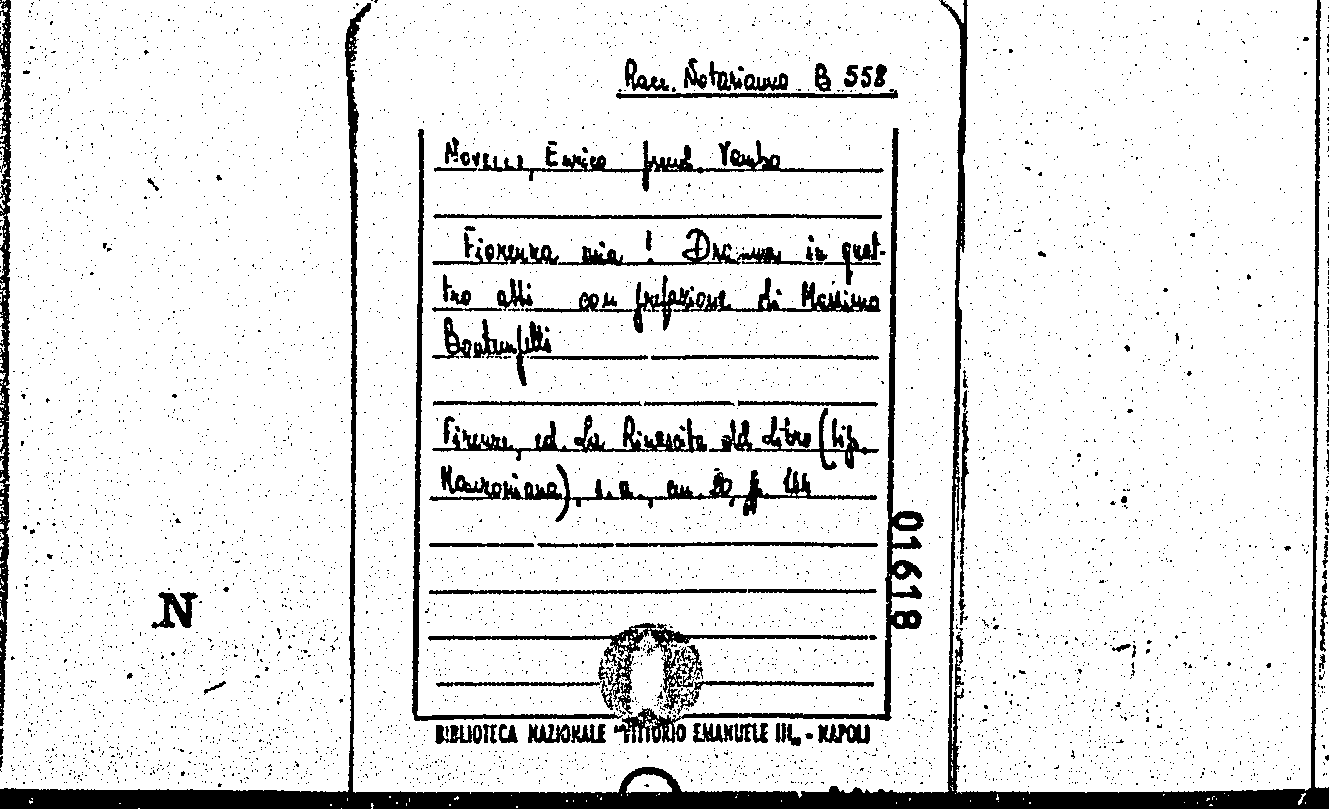 Racc. Notarianno B 558
Novelli, Enrico pseud. Yambo
Fiorenza mia! Dramma in quat-
tro atti con prefazione di Massimo
Bontempelli
Firenze, ed. La Rinascita del Libro (tip.
Mauroniana), s. a., cm. 20, p. 144
01618
N
BIBLIOTECA NAZIONALE "VITTORIO EMANUELE III„ - NAPOLI